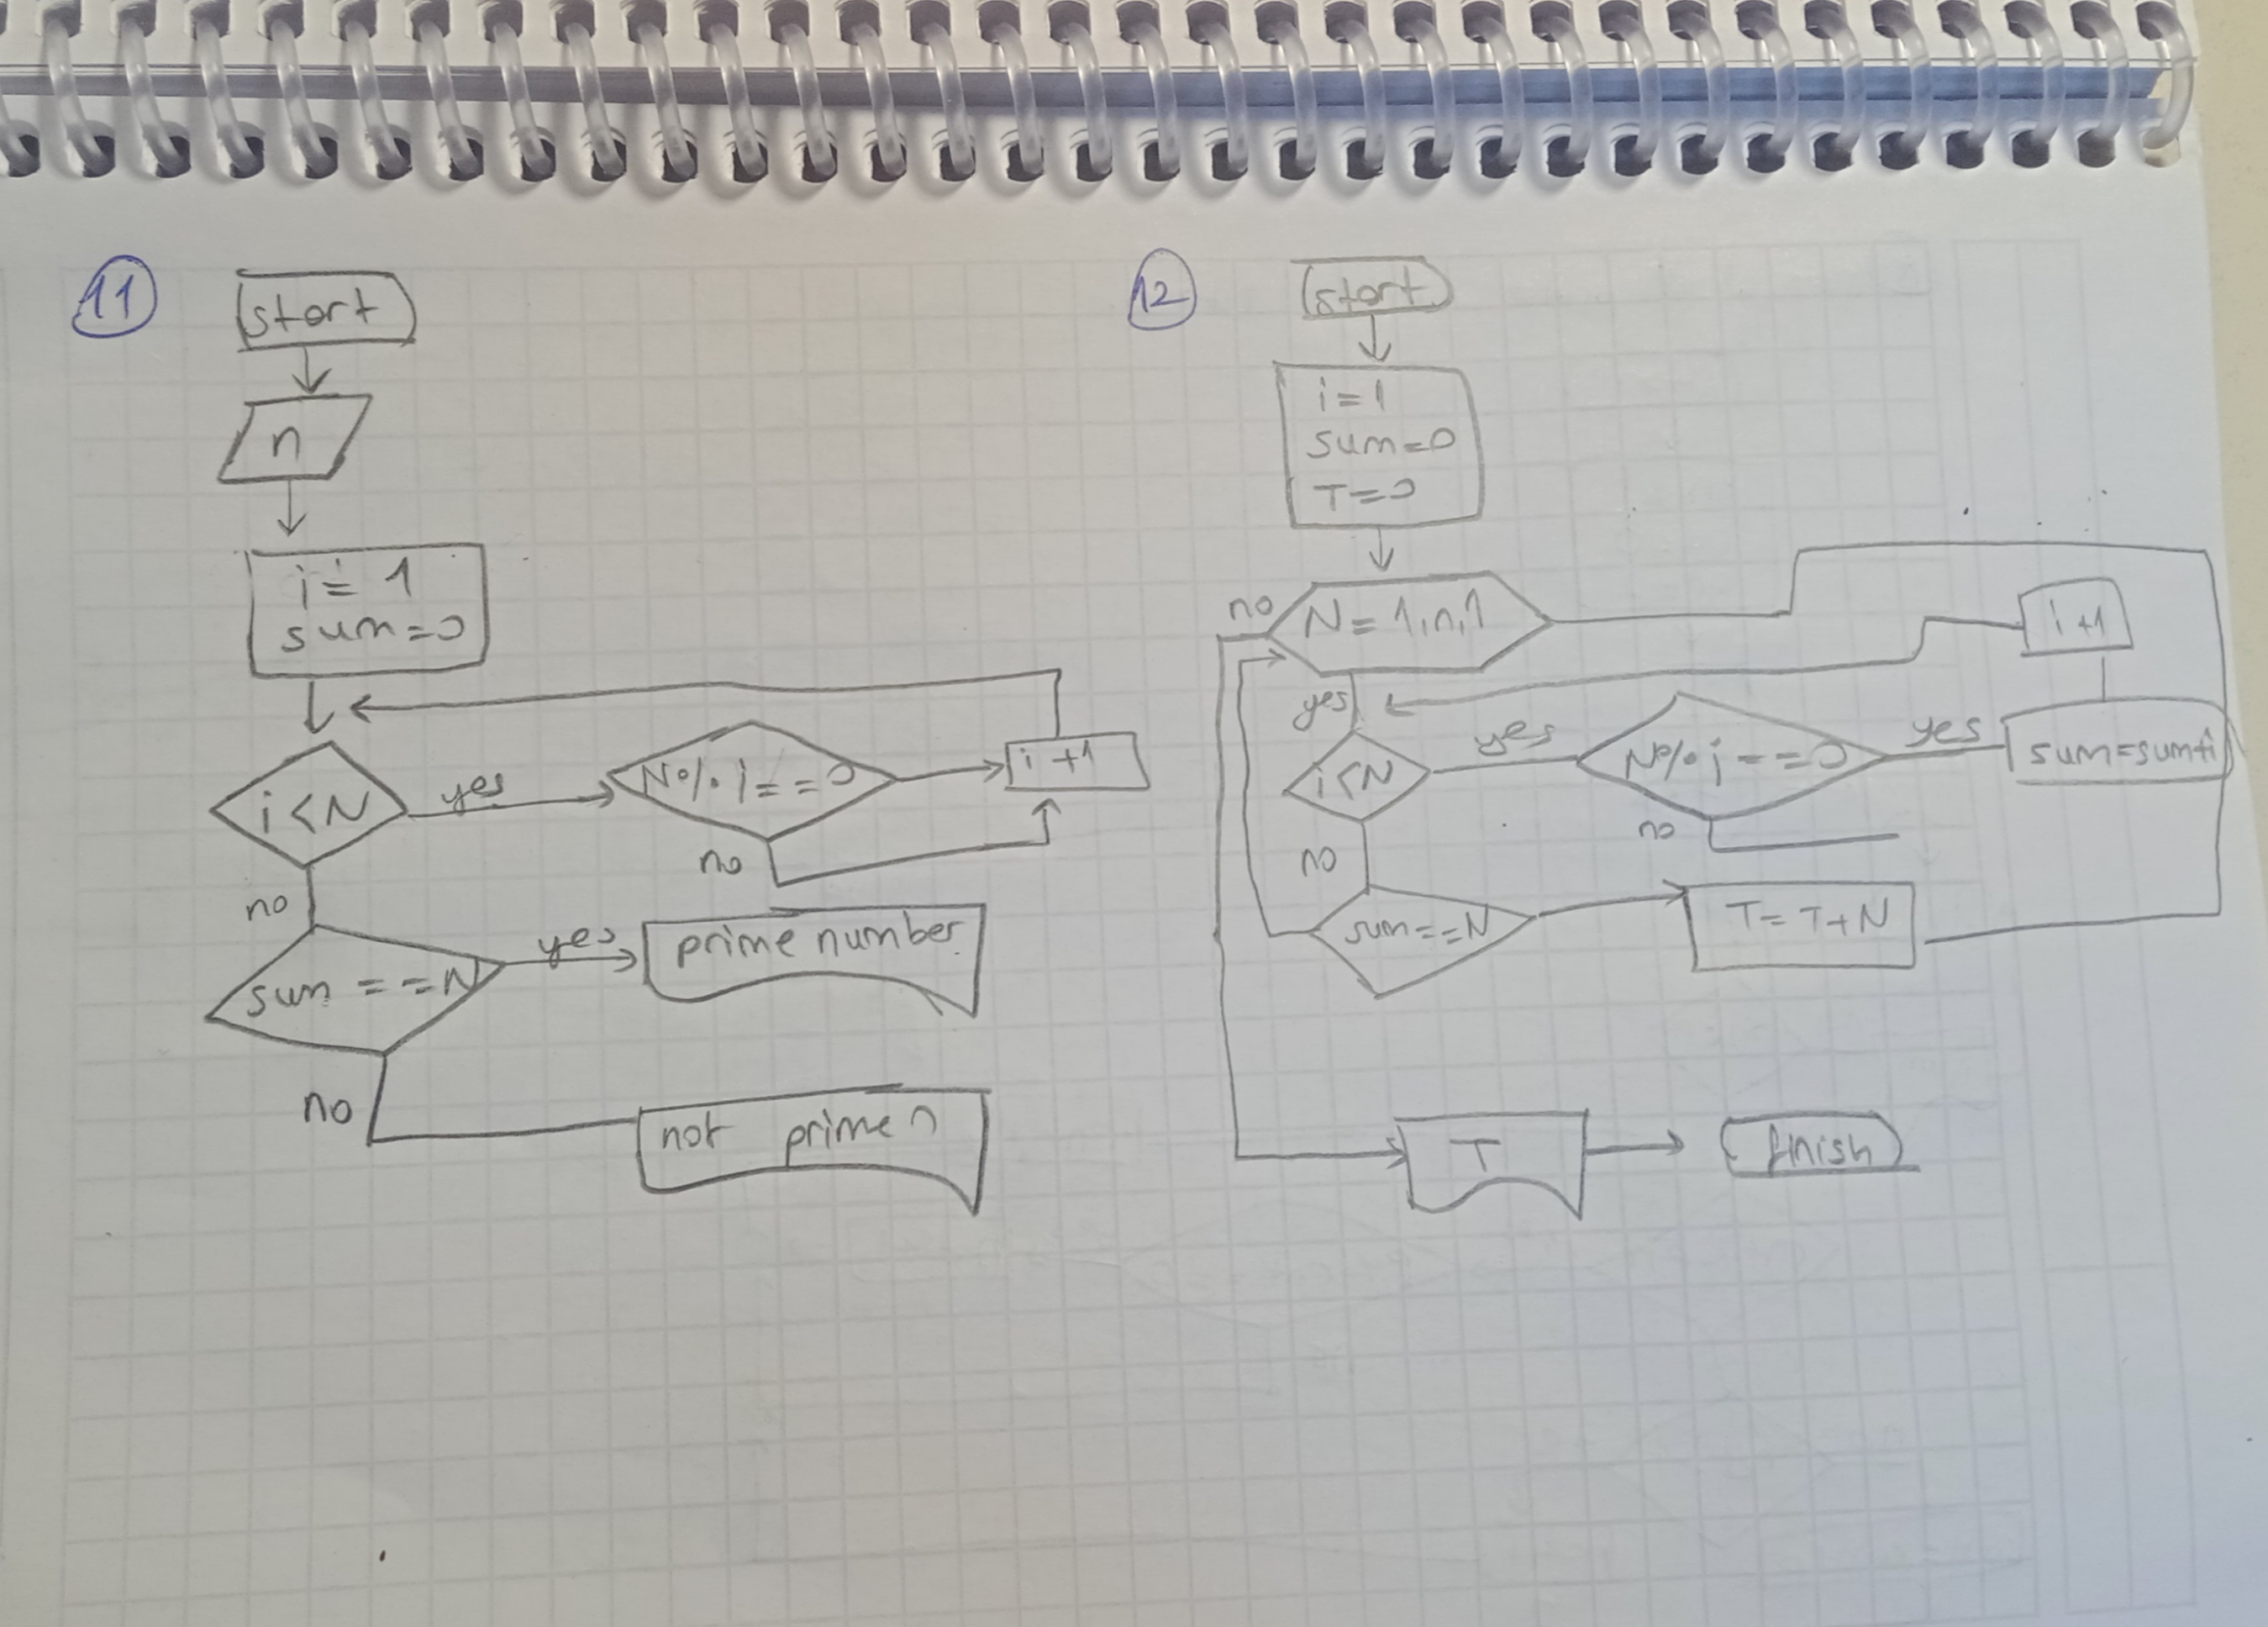 11
start
n
i = 1
sum=0
i<N
yes
N%i==0
i+1
no
no
sum==N
yes
prime number
no
not prime n
12
start
i=1
sum=0
T=0
no
N=1,n,1
i+1
yes
i<N
yes
N%i==0
yes
sum=sum+i
no
no
sum==N
T=T+N
T
finish